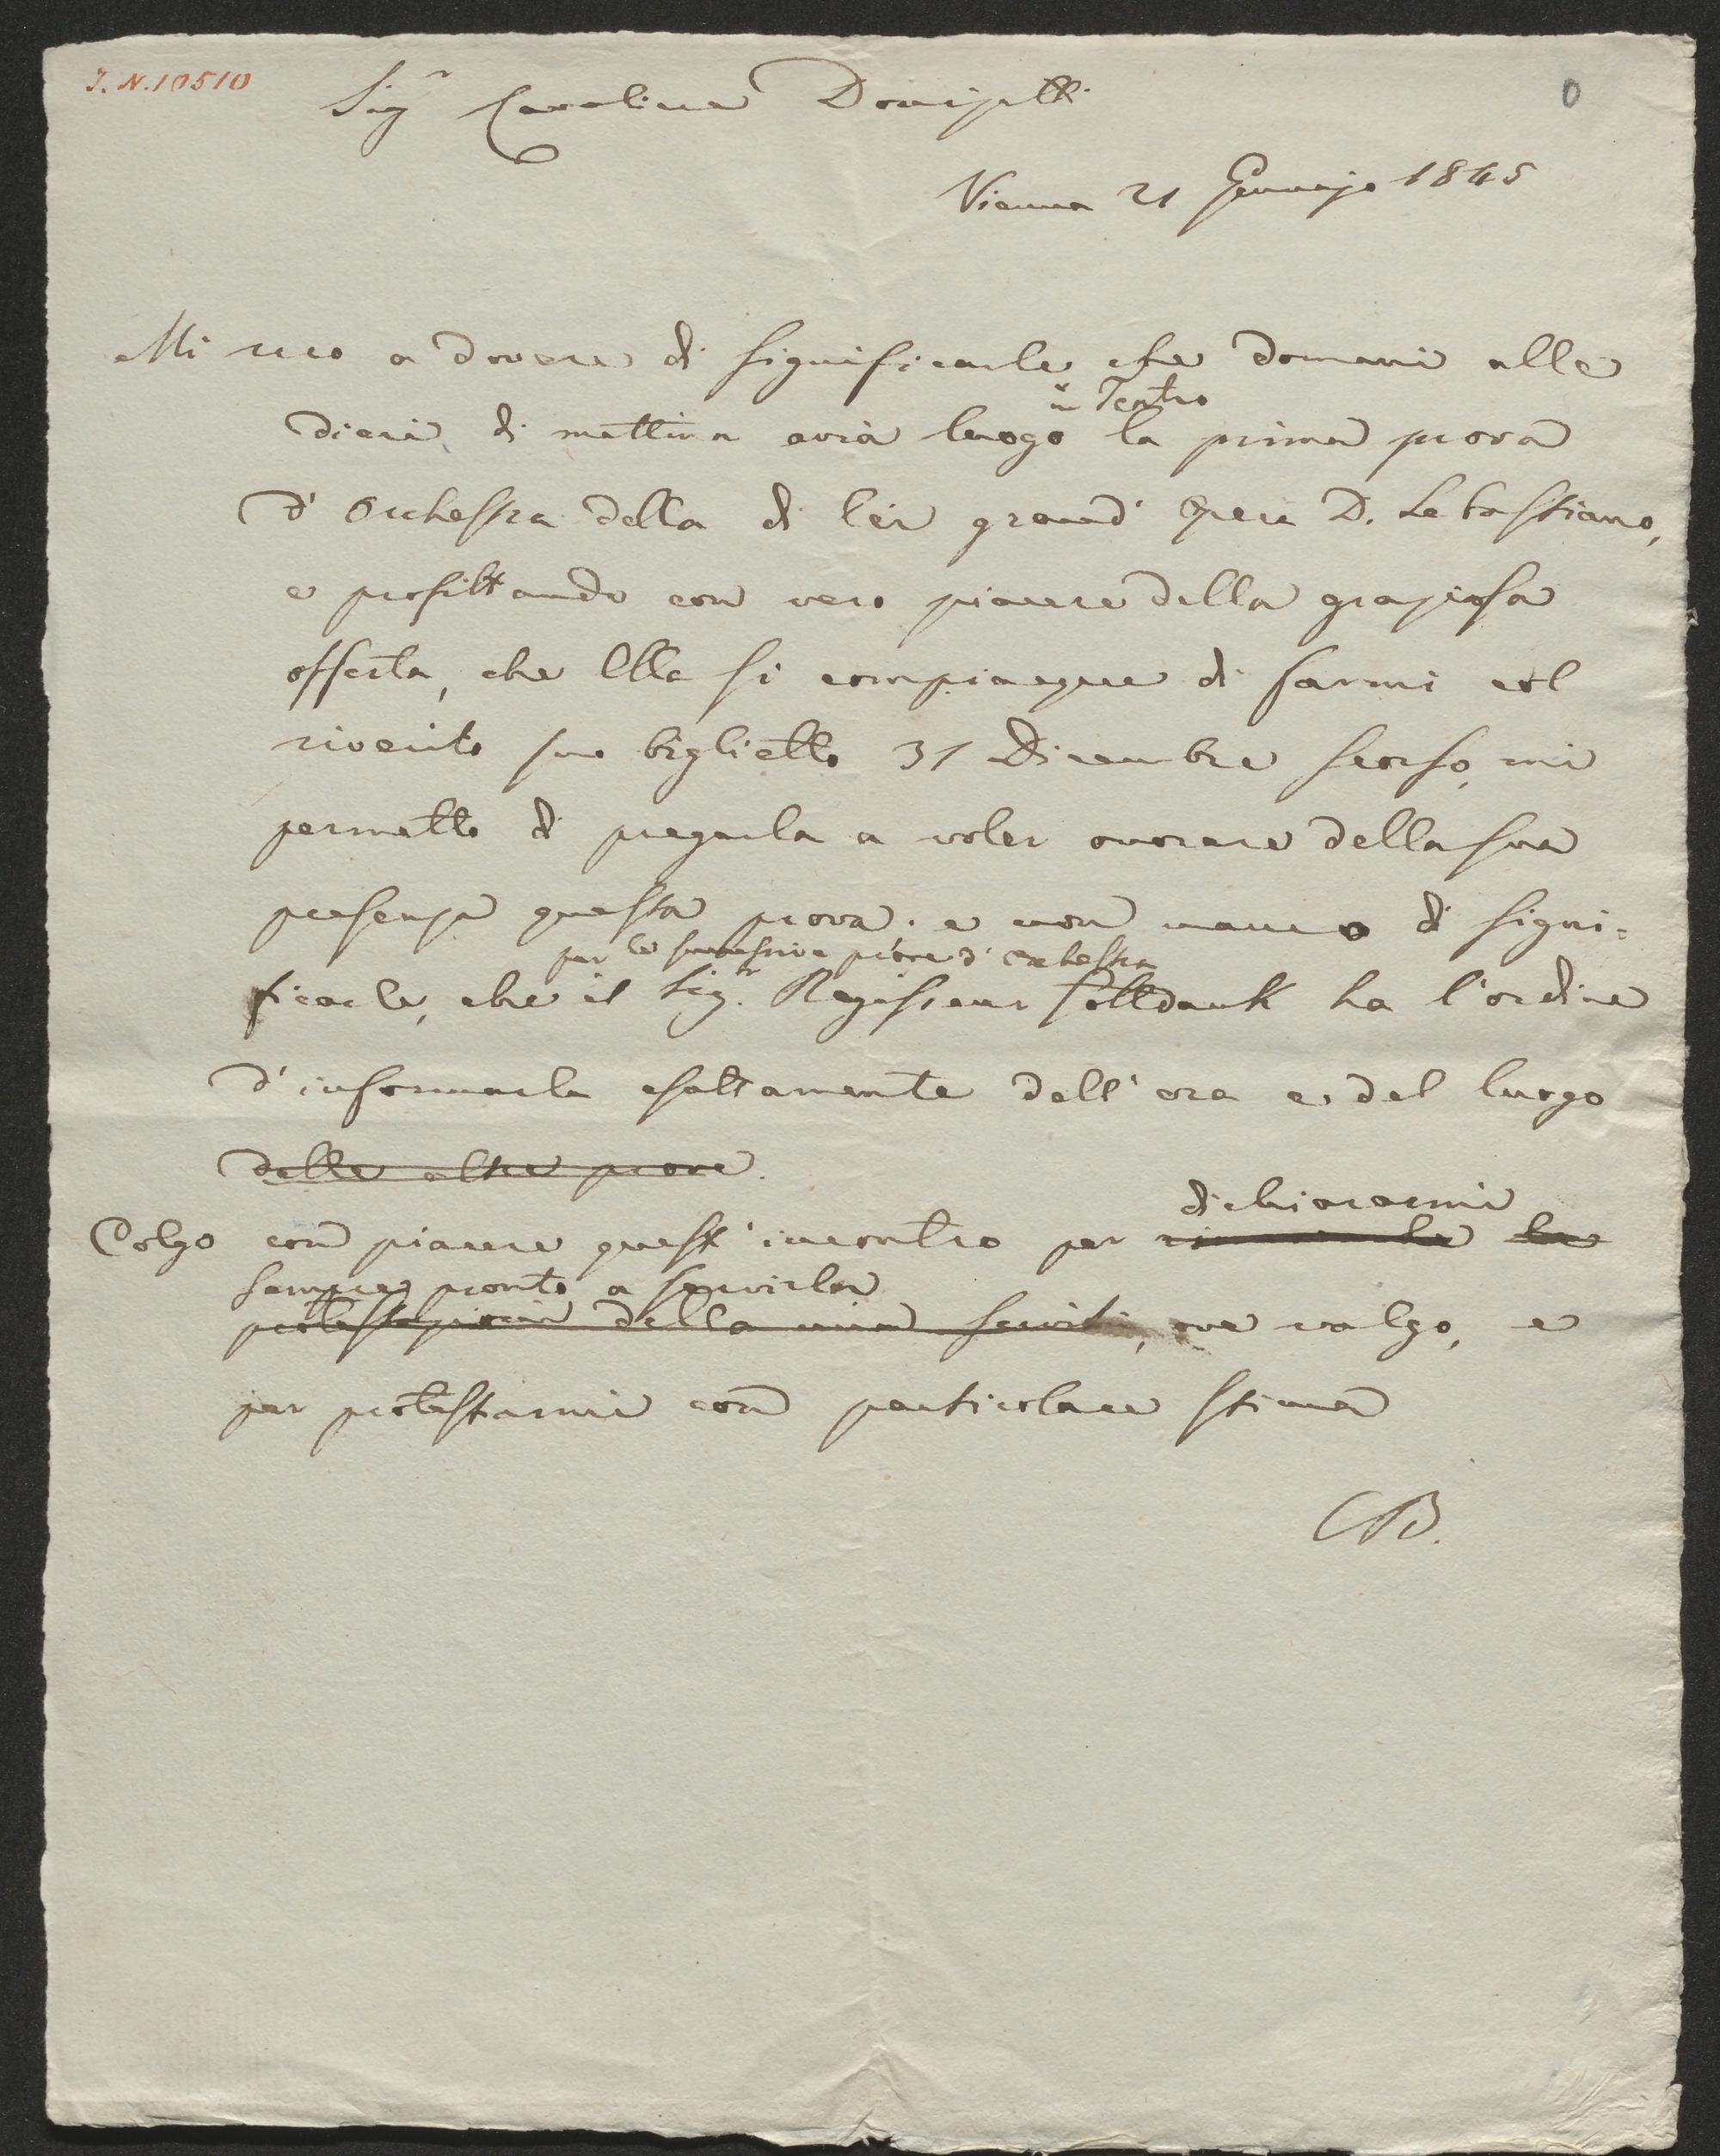 I. N. 10510
0
Sigr Cavaliere Donizetti
Vienna 21 Gennajo 1845
Mi reco a dovere di significarle che domani alle
in Teatro
dieci di mattina avrà luogo la prima prova
d'Orchestra della di lei grand' Opera D. Sebastiano,
e profittando con vero piacere della graziosa
offerta, che Ella si compiacque di farmi col
riverito suo biglietto 31 Dicembre scorso, mi
permetto di pregarla a voler onorare della sua
presenza questa prova. e non manco di signi=
per le successive prove d'orchestra
ficarle, che il Sigr. Regisseur ha l'ordine
d'informarla esattamente dell'ora e del luogo
delle altre prove.
dichiararmi
Colgo con piacere quest'incontro per le
sempre pronto a servirla
della mia servitù, ove valgo, e
per protestarmi con particolare stima
CB.